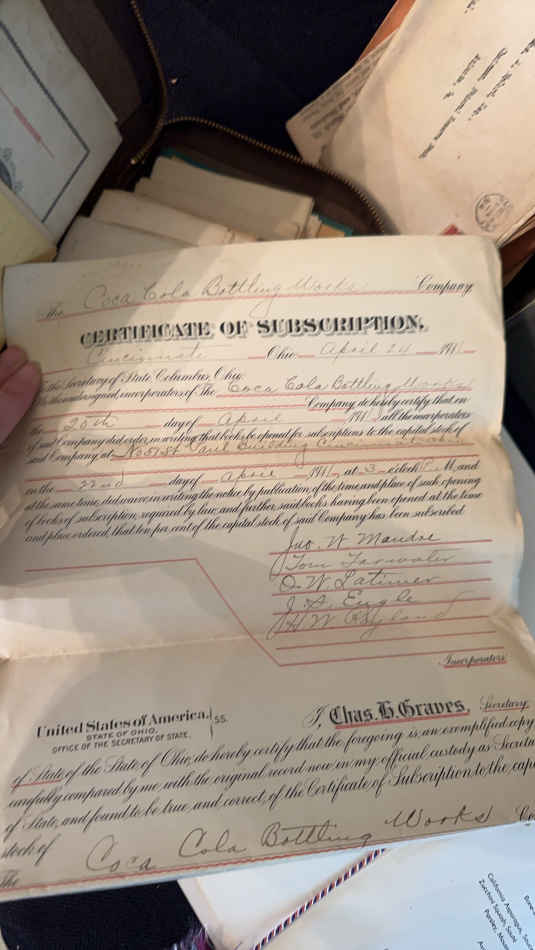 The Coca Cola Bottling Works Company
CERTIFICATE OF SUBSCRIPTION.
Cincinnati Ohio April 24 1911
To the Secretary of State Columbus, Ohio:
the undersigned, incorporators of The Coca Cola Bottling Works
Company, do hereby certify that on
the 20th day of April 1911 all the incorporators
of said Company did order in writing that books be opened for subscriptions to the capital stock of
said Company at No 51 St. Paul Building Cincinnati Ohio
on the 22nd day of April 1911, at 3 o'clock P.M. and
at the same time, did waive in writing the notice by publication, of the time and place of such opening
of books of subscription, required by law, and further, said books having been opened at the time
and place ordered, that ten per cent of the capital stock of said Company has been subscribed.
Jno. W
Tom
O. W. Latimer
J. A. Engle
H W
Incorporators
United States of America, ss.
STATE OF OHIO,
OFFICE OF THE SECRETARY OF STATE
I, Chas. H. Graves, Secretary
of State of the State of Ohio, do hereby certify that the foregoing is an exemplified copy
carefully compared by me with the original record now in my official custody as Secreta
of State, and found to be true and correct, of the Certificate of Subscription to the cap
stock of
The Coca Cola Bottling Works Co
California Asparagus,
Zucchini Squash,
Parsley,